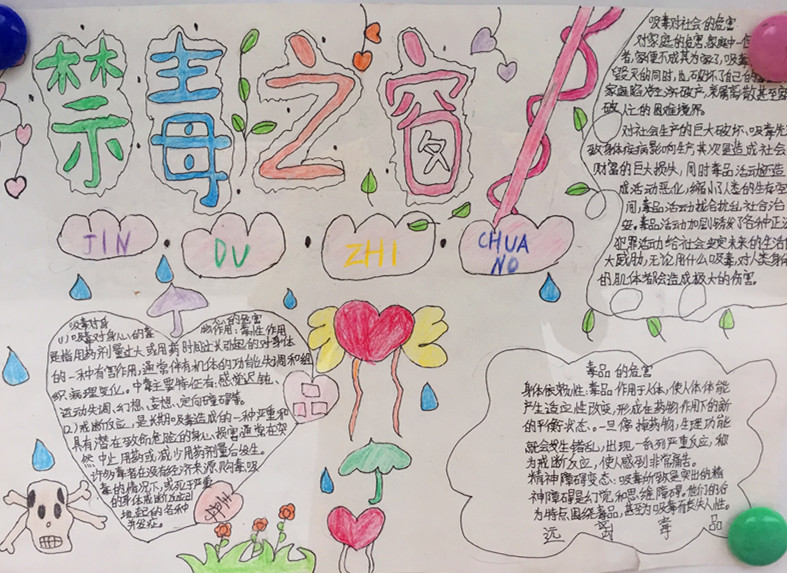 禁毒之窗
JIN DU ZHI CHUANG
吸毒对社会的危害
对家庭的危害:家庭中一但
者,家便不成其为家了,吸毒
毁灭的同时,也破坏了自己的
家庭陷入经济破产、亲属离散甚至家
破人亡的困难境界。
对社会生产的巨大破坏:吸毒先
致身体疾病影响生产,其次是造成社会
财富的巨大损失,同时毒品活动还造
成活动恶化,缩小了人类的生存空
间,毒品活动扰乱社会治
安。毒品活动加剧诱发了各种
犯罪活动给社会安定
大威胁,无论用什么吸毒,对人类身
的肌体都会造成极大的伤害。
吸毒对身心的危害
(1)吸毒对身心的毒性作用:毒性作用
是指用药剂量过大或用药时间过长引起的对身体
的一种有害作用,通常伴有机体的功能失调和组
织病理变化。中毒主要特征有:感觉迟钝、
运动失调、幻想、妄想、定向障碍等。
(2)戒断反应:是长期吸毒造成的一种严重和
具有潜在致命危险的身心损害,通常在突
然中止用药或减少用药剂量后发生。
许多吸毒者在没有经济来源购毒吸
毒的情况下,或死于严重
的身体戒断反应
引起的各种
并发症
毒品的危害
身体依赖性:毒品作用于人体,使人体体能
产生适应性改变,形成在药物作用下的新
的平衡状态。一旦停掉药物,生理功能
就会发生错乱,出现一系列严重反应,称
为戒断反应,使人感到非常痛苦。
精神障碍变态:吸毒所致最突出的精
神障碍是幻觉和思维障碍。他们的行
为特点围绕毒品,甚至为吸毒而丧失人性。
远离毒品